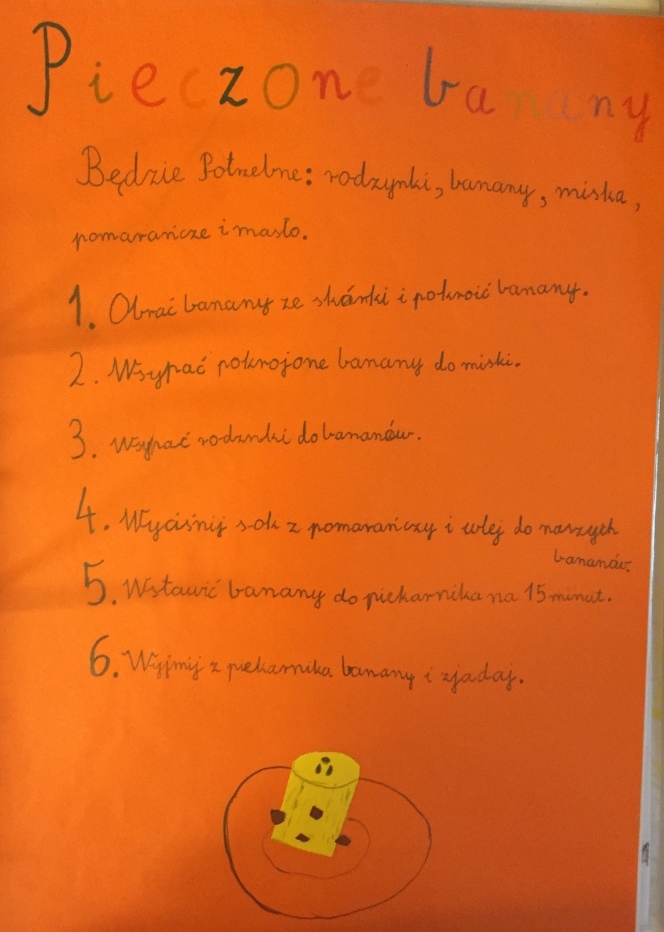 Pieczone banany
Będzie Potrzebne: rodzynki, banany, miska,
pomarańcze i masło.
1. Obrać banany ze skórki i pokroić banany.
2. Wsypać pokrojone banany do miski.
3. Wsypać rodznki do bananów.
4. Wyciśnij sok z pomarańczy i wlej do naszych
bananów.
5. Wstawić banany do piekarnika na 15 minut.
6. Wyjmij z piekarnika banany i zjadaj.